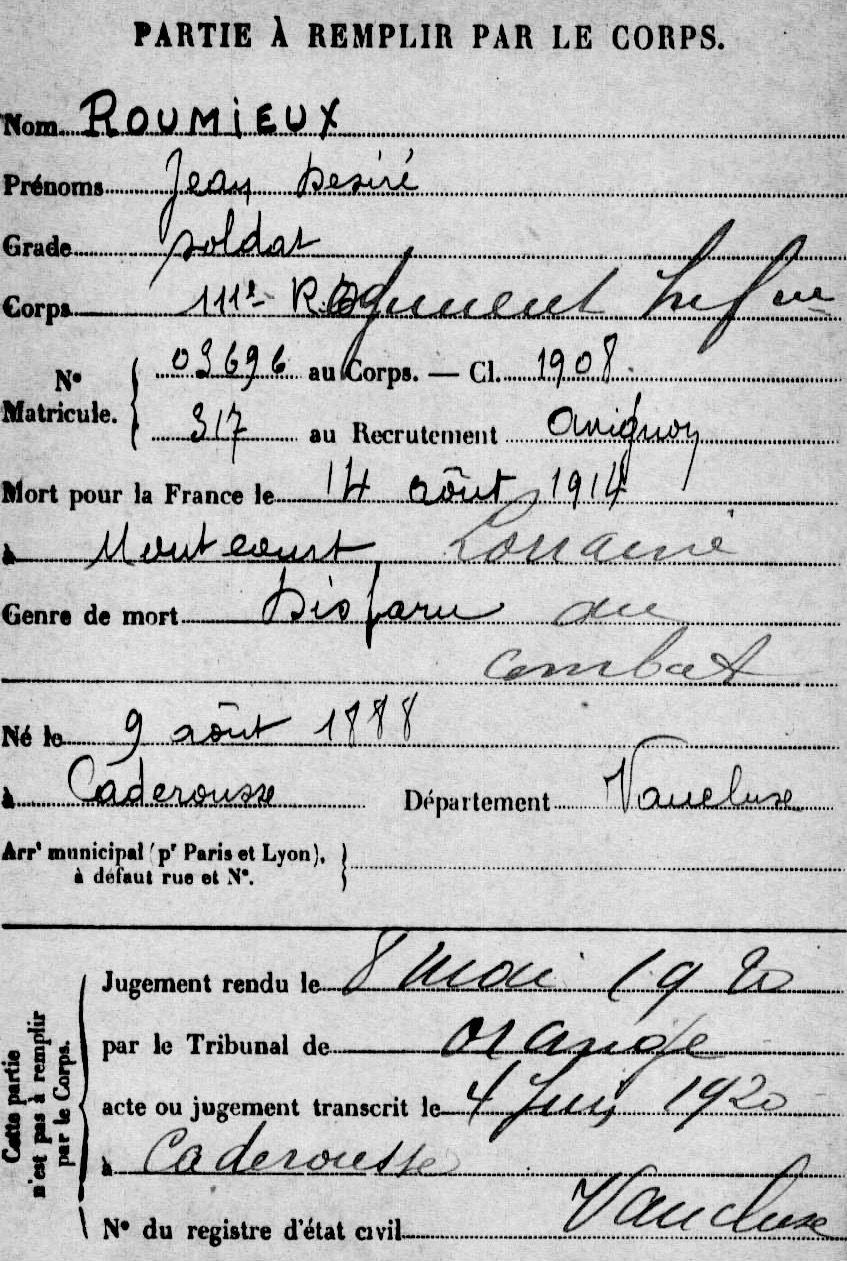 PARTIE À REMPLIR PAR LE CORPS.
Nom ROUMIEUX
Prénoms Jean Désiré
Grade soldat
Corps 111e Régiment Infrie
No Matricule. 03696 au Corps. — Cl. 1908.
317 au Recrutement Avignon
Mort pour la France le 14 août 1914
à Montcourt Lorraine
Genre de mort Disparu au
combat
Né le 9 août 1888
à Caderousse Département Vaucluse
Arrt municipal (pr Paris et Lyon),
à défaut rue et No.
Cette partie
n'est pas à remplir
par le Corps.
Jugement rendu le 8 mai 1920
par le Tribunal de Orange
acte ou jugement transcrit le 4 Juin 1920
à Caderousse
Vaucluse
No du registre d'état civil